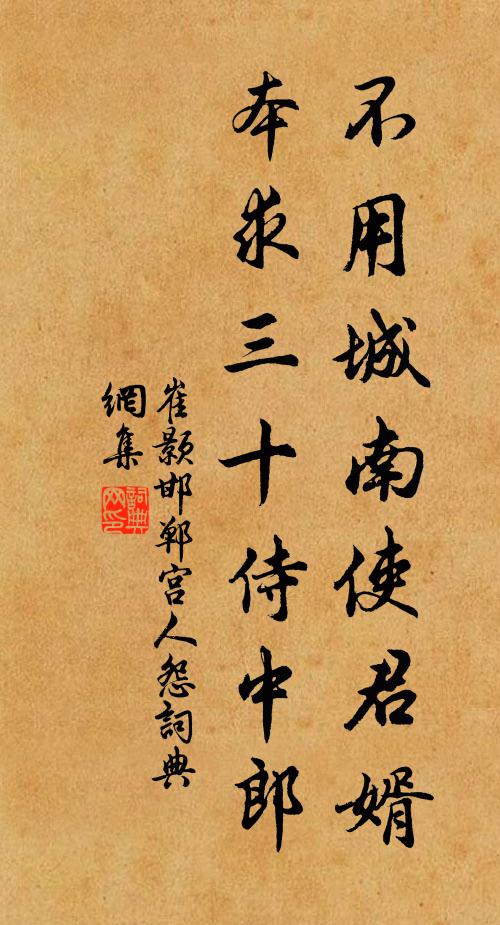 不用城南使君婿
本求三十侍中郎
崔顥邯鄲宮人怨詞典
網集
詞典
网印